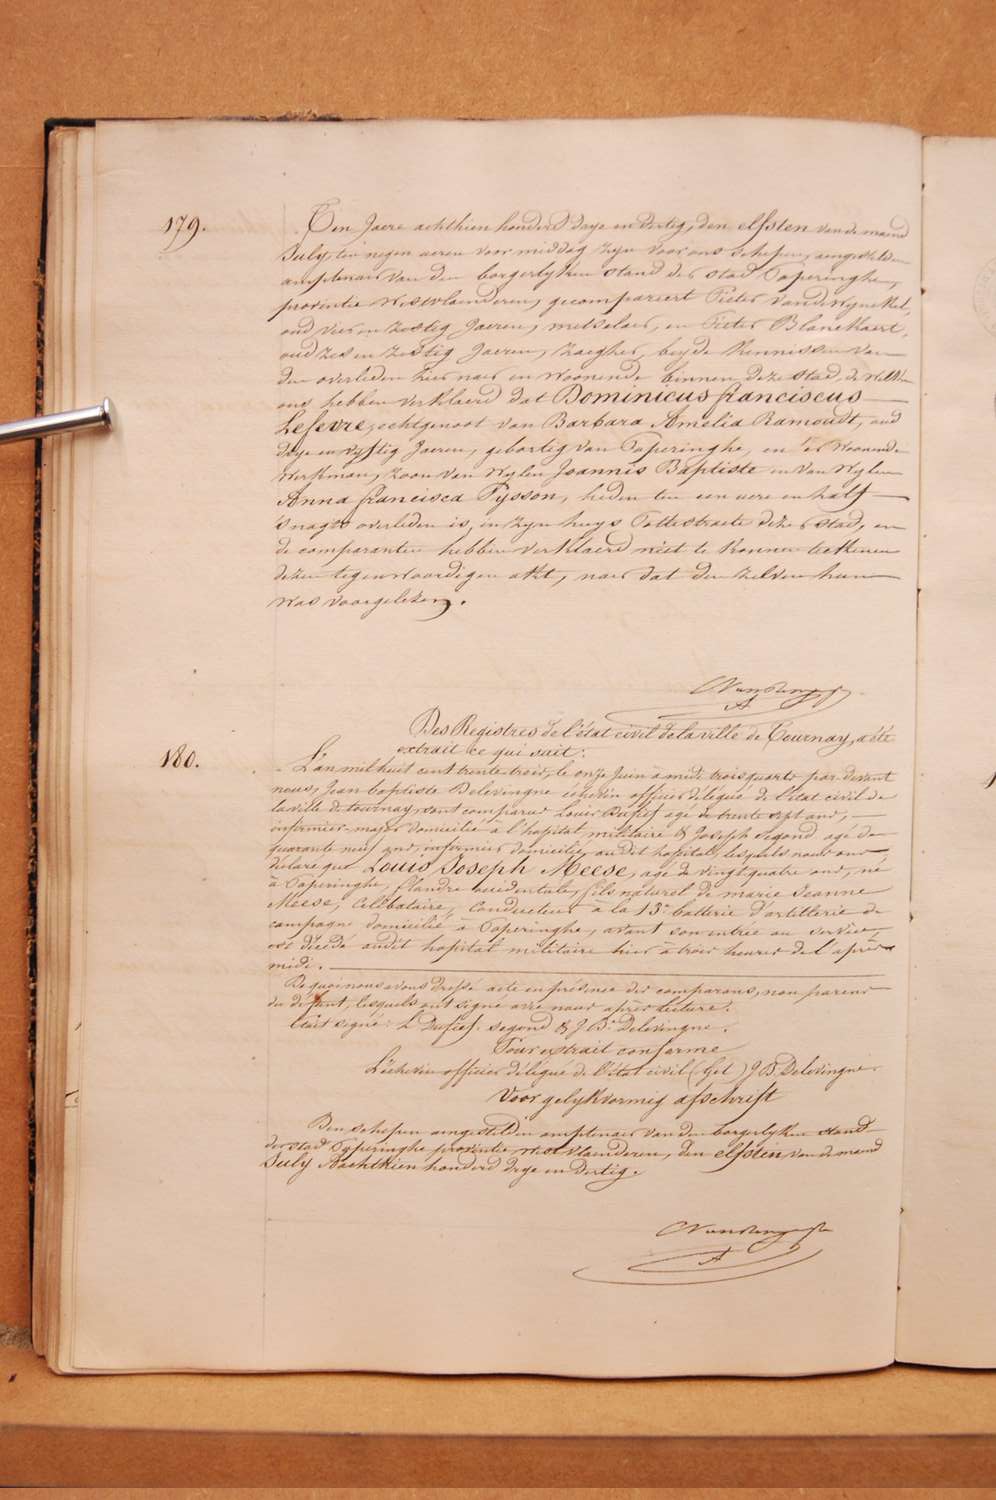 179.
Ten Jaere achthien honderd drye en dertig, den elfsten van de maend
July, ten negen ueren voor middag zyn voor ons schepen, aengestelden
amptenaer van den borgerlyken stand der stad Poperinghe,
provintie Westvlaenderen, gecompareert Pieter Vandewynckel,
oud vier en zestig Jaeren, metselaer, en Pieter Blanckaert,
oud zes en zestig Jaeren, zaegher, beyde kennissen van
den overleden hier naer en woonende binnen deze stad, de welke
ons hebben verklaerd dat Dominicus franciscus
Lefevre, echtgenoot van Barbara Amelia Ramoudt, oud
drye en vyftig Jaeren, geboortig van Poperinghe, en er woonende
werkman, zoon van wylen Joannis Baptiste en van wylen
Anna francisca Tysson, heden ten een uere en half
's nagts overleden is, in zyn huys Pottestraete dezer stad, en
de comparanten hebben verklaerd niet te konnen teekenen
dezen tegenwoordigen akt, naer dat den zelven hun
was voorgelezen.
180.
Des Registres de l'état civil de la ville de Tournay, a été
extrait ce qui suit:
L'an mil huit cent trente trois, le onze Juin à midi trois quarts par devant
nous, Jean baptiste Delevingne échevin officier délégué de l'état civil de
la ville de tournay, sont comparus Louis Dufief agé de trente sept ans,
infirmier-major domicilié à l'hopital militaire & Joseph segond agé de
quarante neuf ans, infirmier domicilié au dit hopital, lesquels nous ont
déclaré que Louis Joseph Meese, agé de vingt quatre ans, né
à Poperinghe, flandre occidentale, fils naturel de marie Jeanne
Meese, Célibataire, Conducteur à la 13e batterie d'artillerie de
campagne domicilié à Poperinghe, avant son entrée au service,
est décédé audit hopital militaire hier à trois heures de l'après
midi.
De quoi nous avons dressé acte en présence des comparans, non parens
du défunt, lesquels ont signé avec nous après lecture.
Etait signé: L Dufief, segond & J Bte Delevingne.
Pour extrait conforme
L'échevin officier délégué de l'état civil (Get) J B Delevingne.
Voor gelykvormig afschrift
Den schepen aengestelden amptenaer van den borgerlyken stand
der stad Poperinghe provintie westvlaenderen, den elfsten van de maend
July Aachthien honderd drye en dertig.